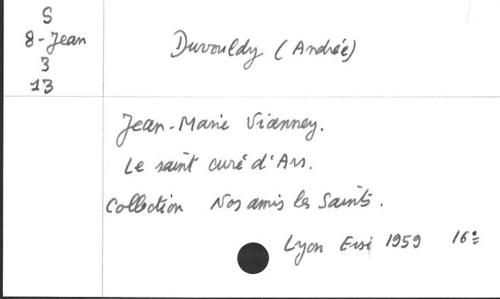 S
8-Jean
3
13
Duvouldy (Andrée)
Jean-Marie Vianney.
Le saint curé d'Ars.
Collection Nos amis les Saints.
Lyon Ersi 1959 16º